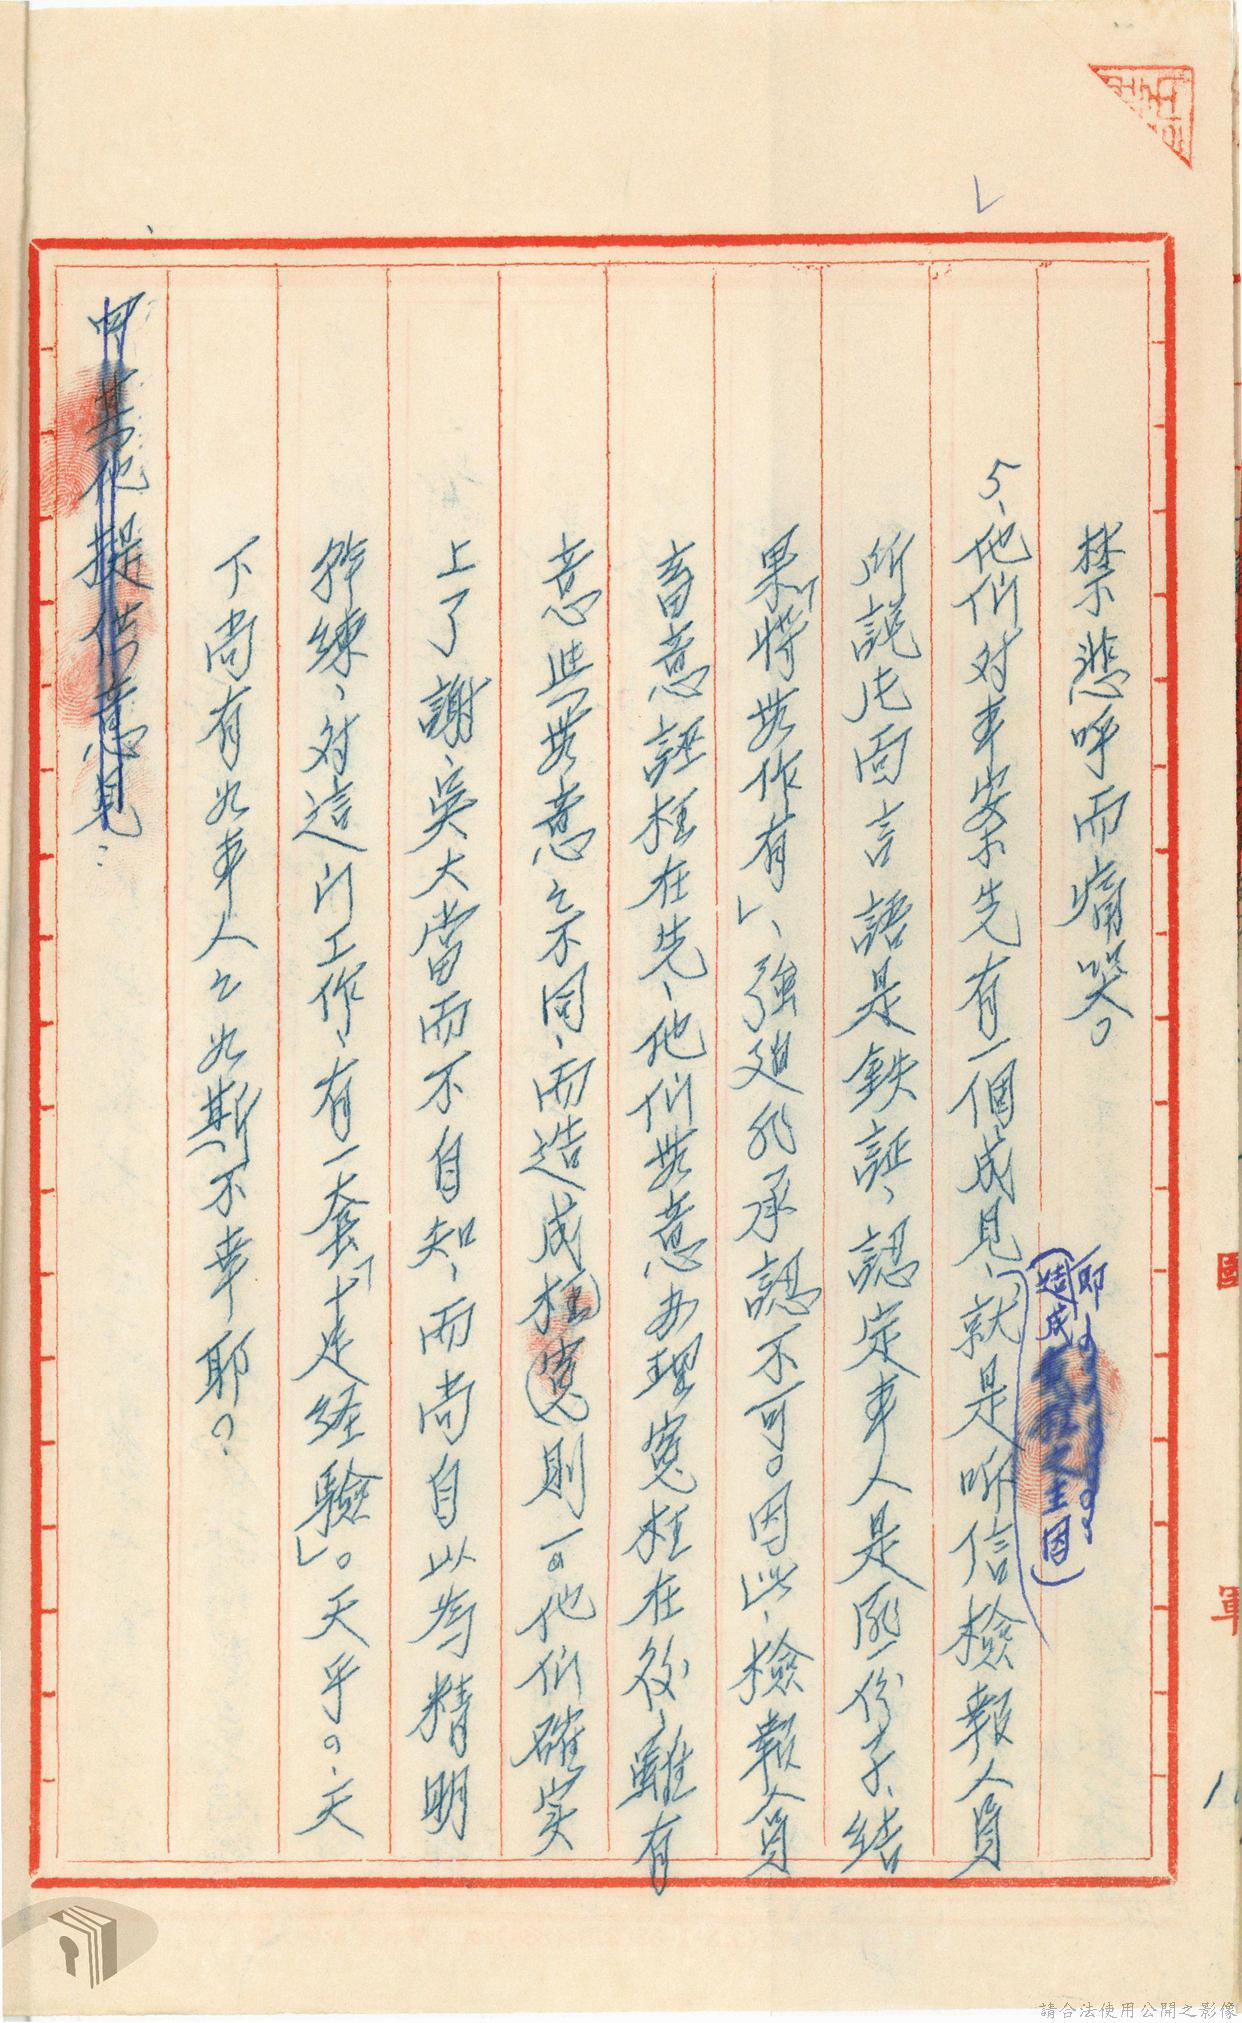 禁悲呼而痛哭。
即
(造成主因)
5、他们对本案先有一個成見，就是听信檢報人員
所說片面言語是鉄証，認定本人是匪份子、結
果「将無作有」、強廹非承認不可。因此，檢報人員
畜意誣枉在先，他们無意办理寃枉在後，雖有
意與無意之不同，而造成枉寃則一。他们確实
上了謝、吳大當而不自知，而尚自以為精明
幹練，对這门工作，有一套「十足经驗」。天乎。天
下尚有如本人之如斯不幸耶？
其他提供意見：
國
軍
請合法使用公開之影像